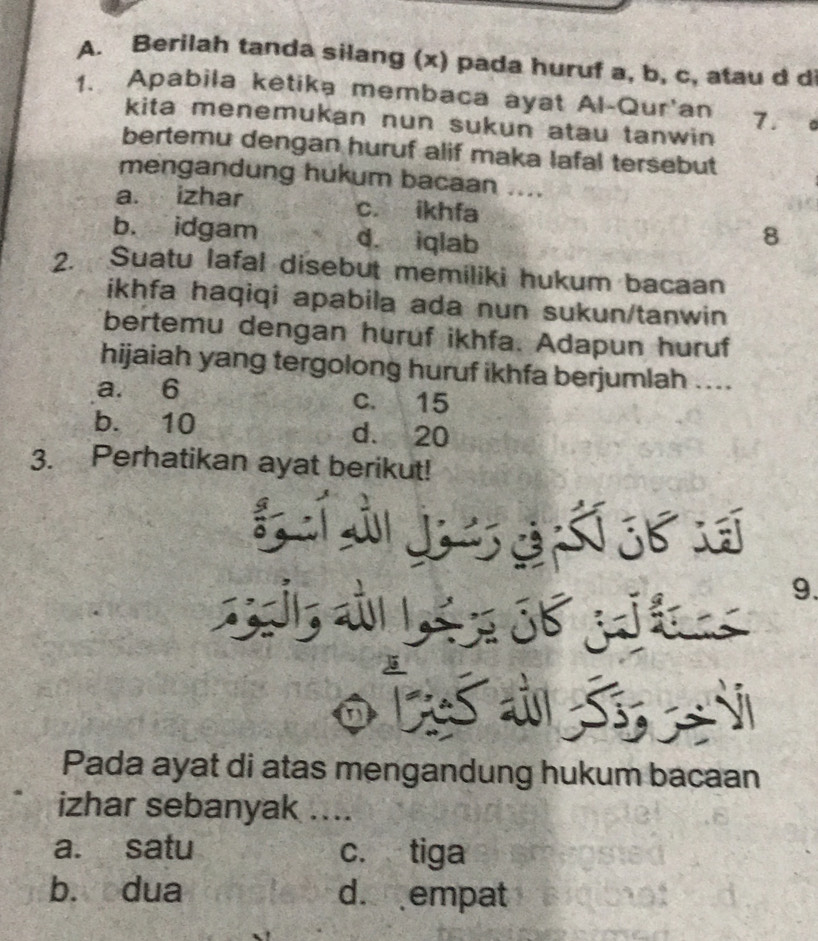 A. Berilah tanda silang (x) pada huruf a, b, c, atau d di
1. Apabila ketika membaca ayat Al-Qur'an
kita menemukan nun sukun atau tanwin
bertemu dengan huruf alif maka lafal tersebut
mengandung hukum bacaan ....
a. izhar c. ikhfa
b. idgam d. iqlab
2. Suatu lafal disebut memiliki hukum bacaan
ikhfa haqiqi apabila ada nun sukun/tanwin
bertemu dengan huruf ikhfa. Adapun huruf
hijaiah yang tergolong huruf ikhfa berjumlah ....
a. 6 c. 15
b. 10 d. 20
3. Perhatikan ayat berikut!
لَقَدْ كَانَ لَكُمْ فِيْ رَسُوْلِ اللّٰهِ اُسْوَةٌ
حَسَنَةٌ لِّمَنْ كَانَ يَرْجُوا اللّٰهَ وَالْيَوْمَ
الْاٰخِرَ وَذَكَرَ اللّٰهَ كَثِيْرًاۗ ٢١
Pada ayat di atas mengandung hukum bacaan
izhar sebanyak ....
a. satu c. tiga
b. dua d. empat
7.
8
9.